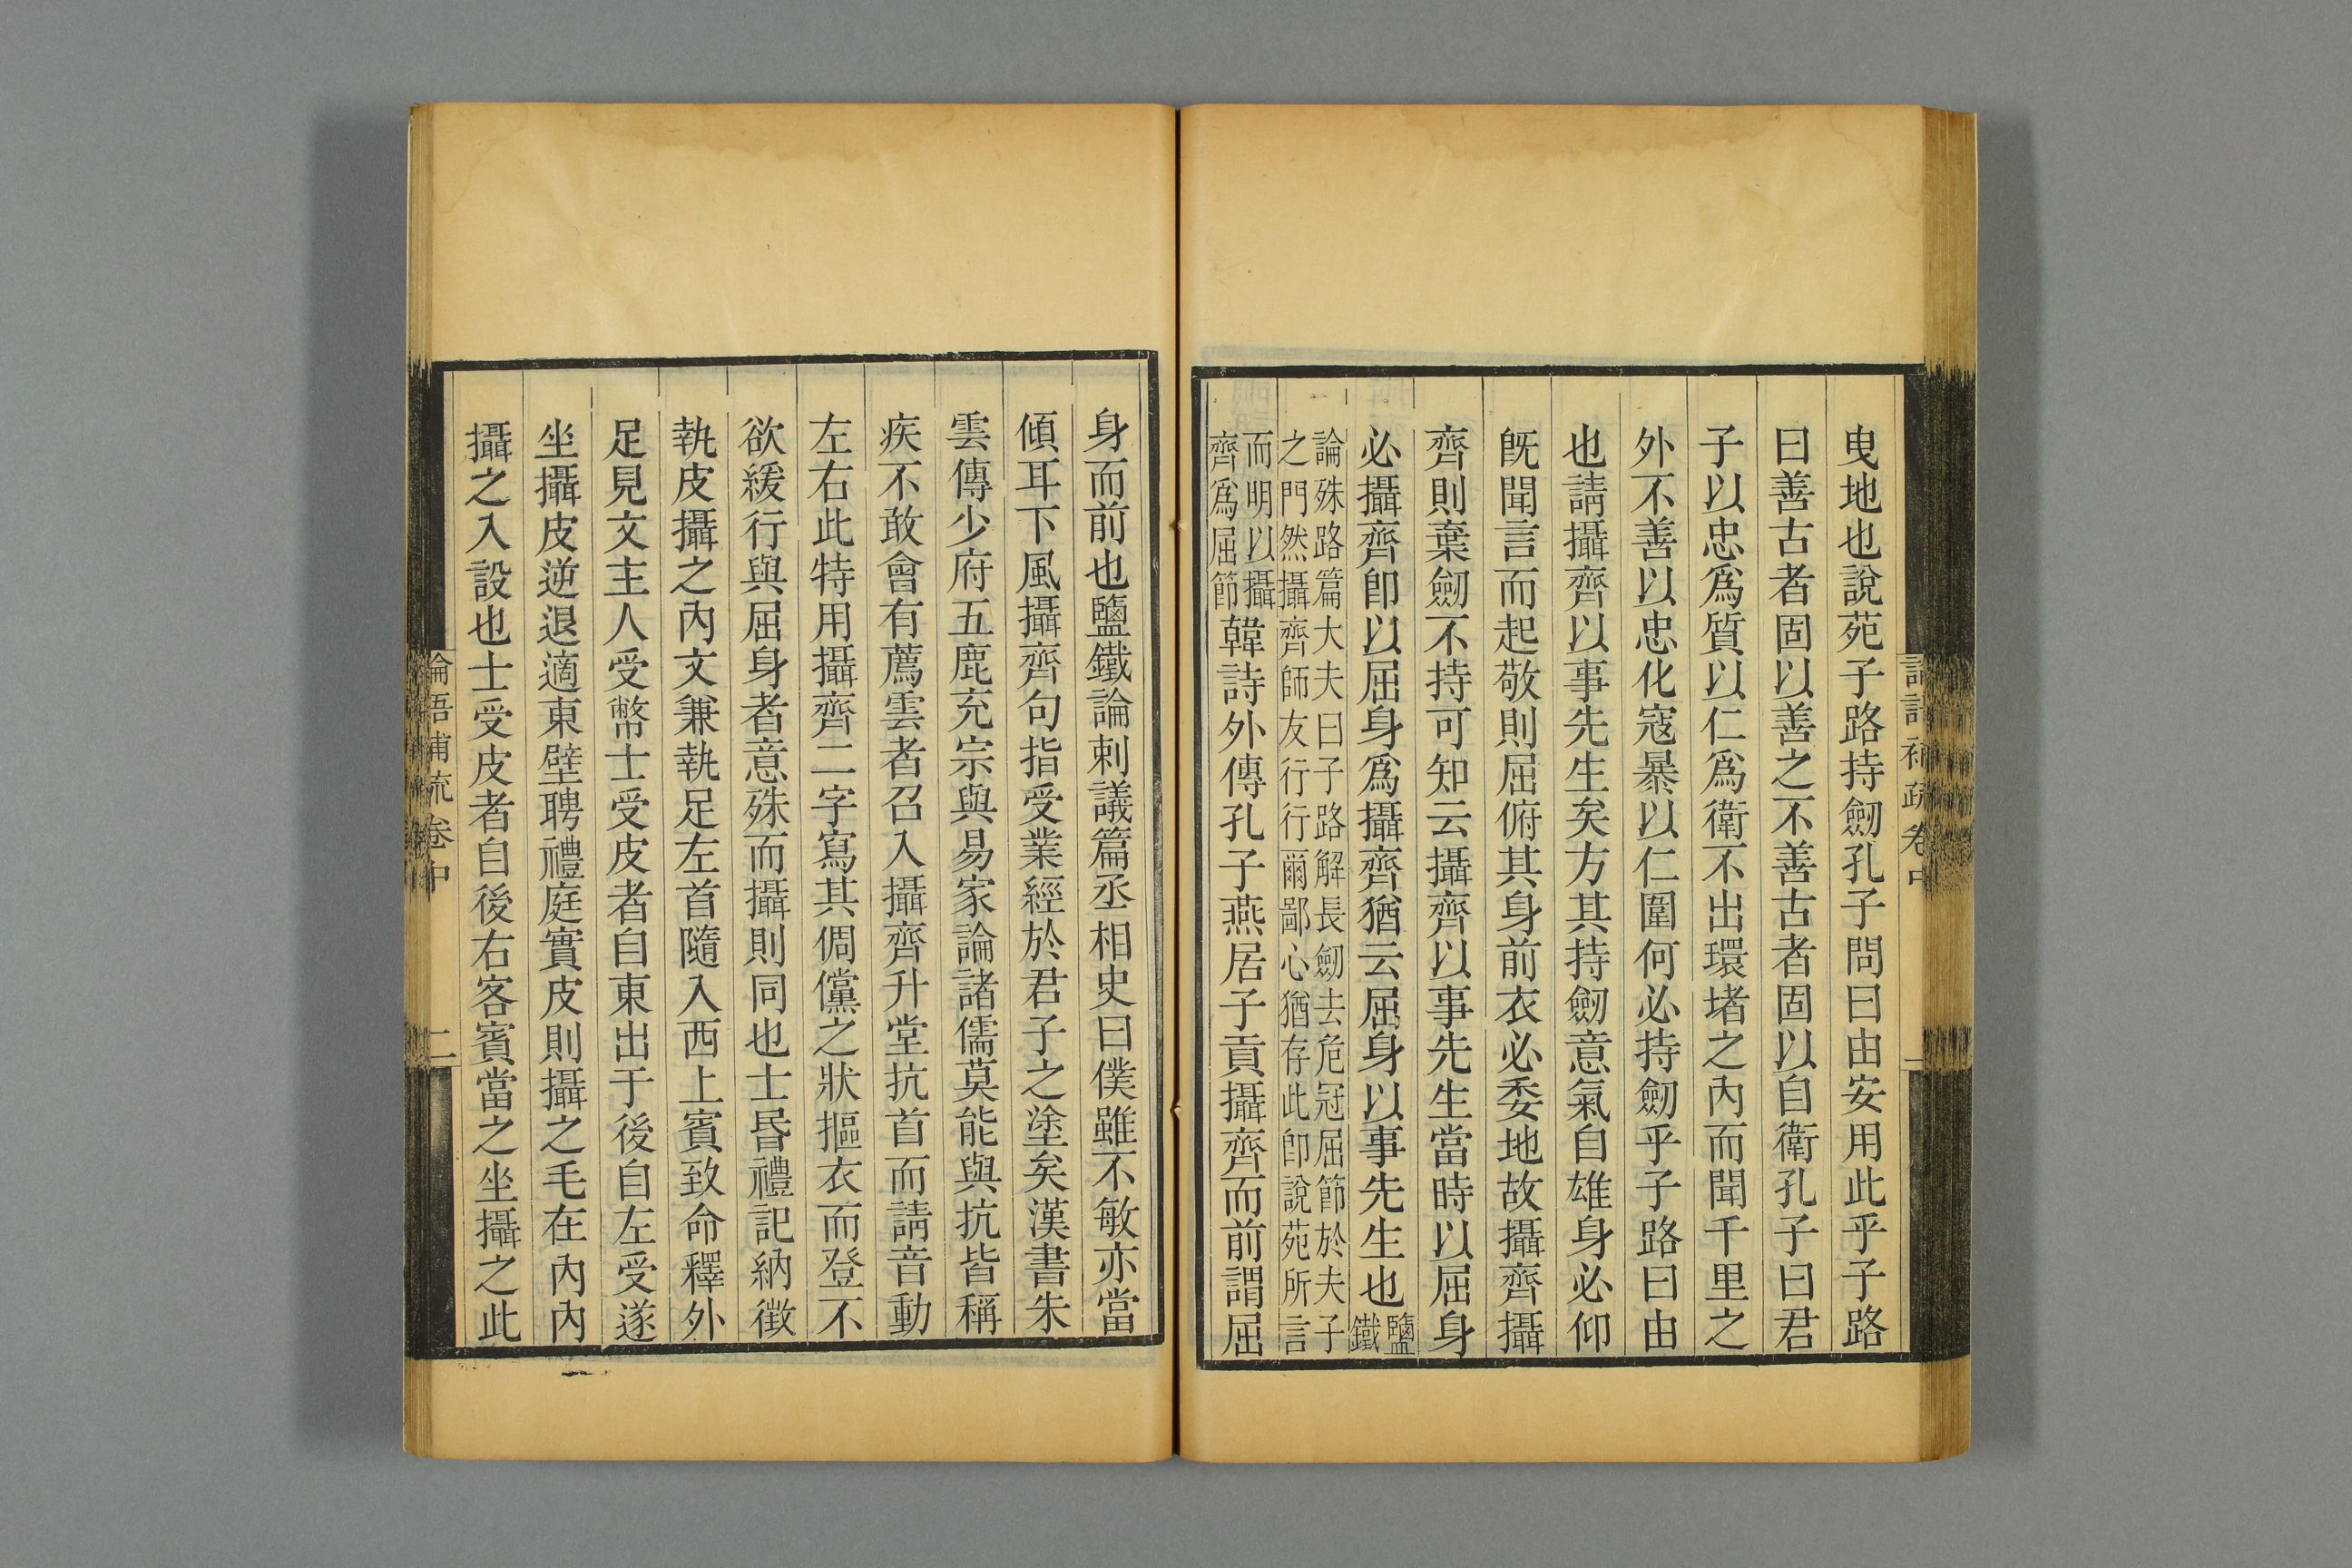 曳地也說苑子路持劒孔子問曰由安用此乎子路
曰善古者固以善之不善古者固以自衛孔子曰君
子以忠爲質以仁爲衛不出環堵之內而聞千里之
外不善以忠化寇暴以仁圍何必持劒乎子路曰由
也請攝齊以事先生矣方其持劒意氣自雄身必仰
旣聞言而起敬則屈俯其身前衣必委地故攝齊攝
齊則棄劒不持可知云攝齊以事先生當時以屈身
必攝齊卽以屈身爲攝齊猶云屈身以事先生也鹽
鐵
論殊路篇大夫曰子路解長劒去危冠屈節於夫子
之門然攝齊師友行行爾鄙心猶存此卽說苑所言
而明以攝
齊爲屈節
韓詩外傳孔子燕居子貢攝齊而前謂屈
身而前也鹽鐵論刺議篇丞相史曰僕雖不敏亦當
傾耳下風攝齊句指受業經於君子之塗矣漢書朱
雲傳少府五鹿充宗與易家論諸儒莫能與抗皆稱
疾不敢會有薦雲者召入攝齊升堂抗首而請音動
左右此特用攝齊二字寫其倜儻之狀摳衣而登不
欲緩行與屈身者意殊而攝則同也士昏禮記納徵
執皮攝之內文兼執足左首隨入西上賓致命釋外
足見文主人受幣士受皮者自東出于後自左受遂
坐攝皮逆退適東壁聘禮庭實皮則攝之毛在內內
攝之入設也士受皮者自後右客賓當之坐攝之此
論語補疏卷中
二